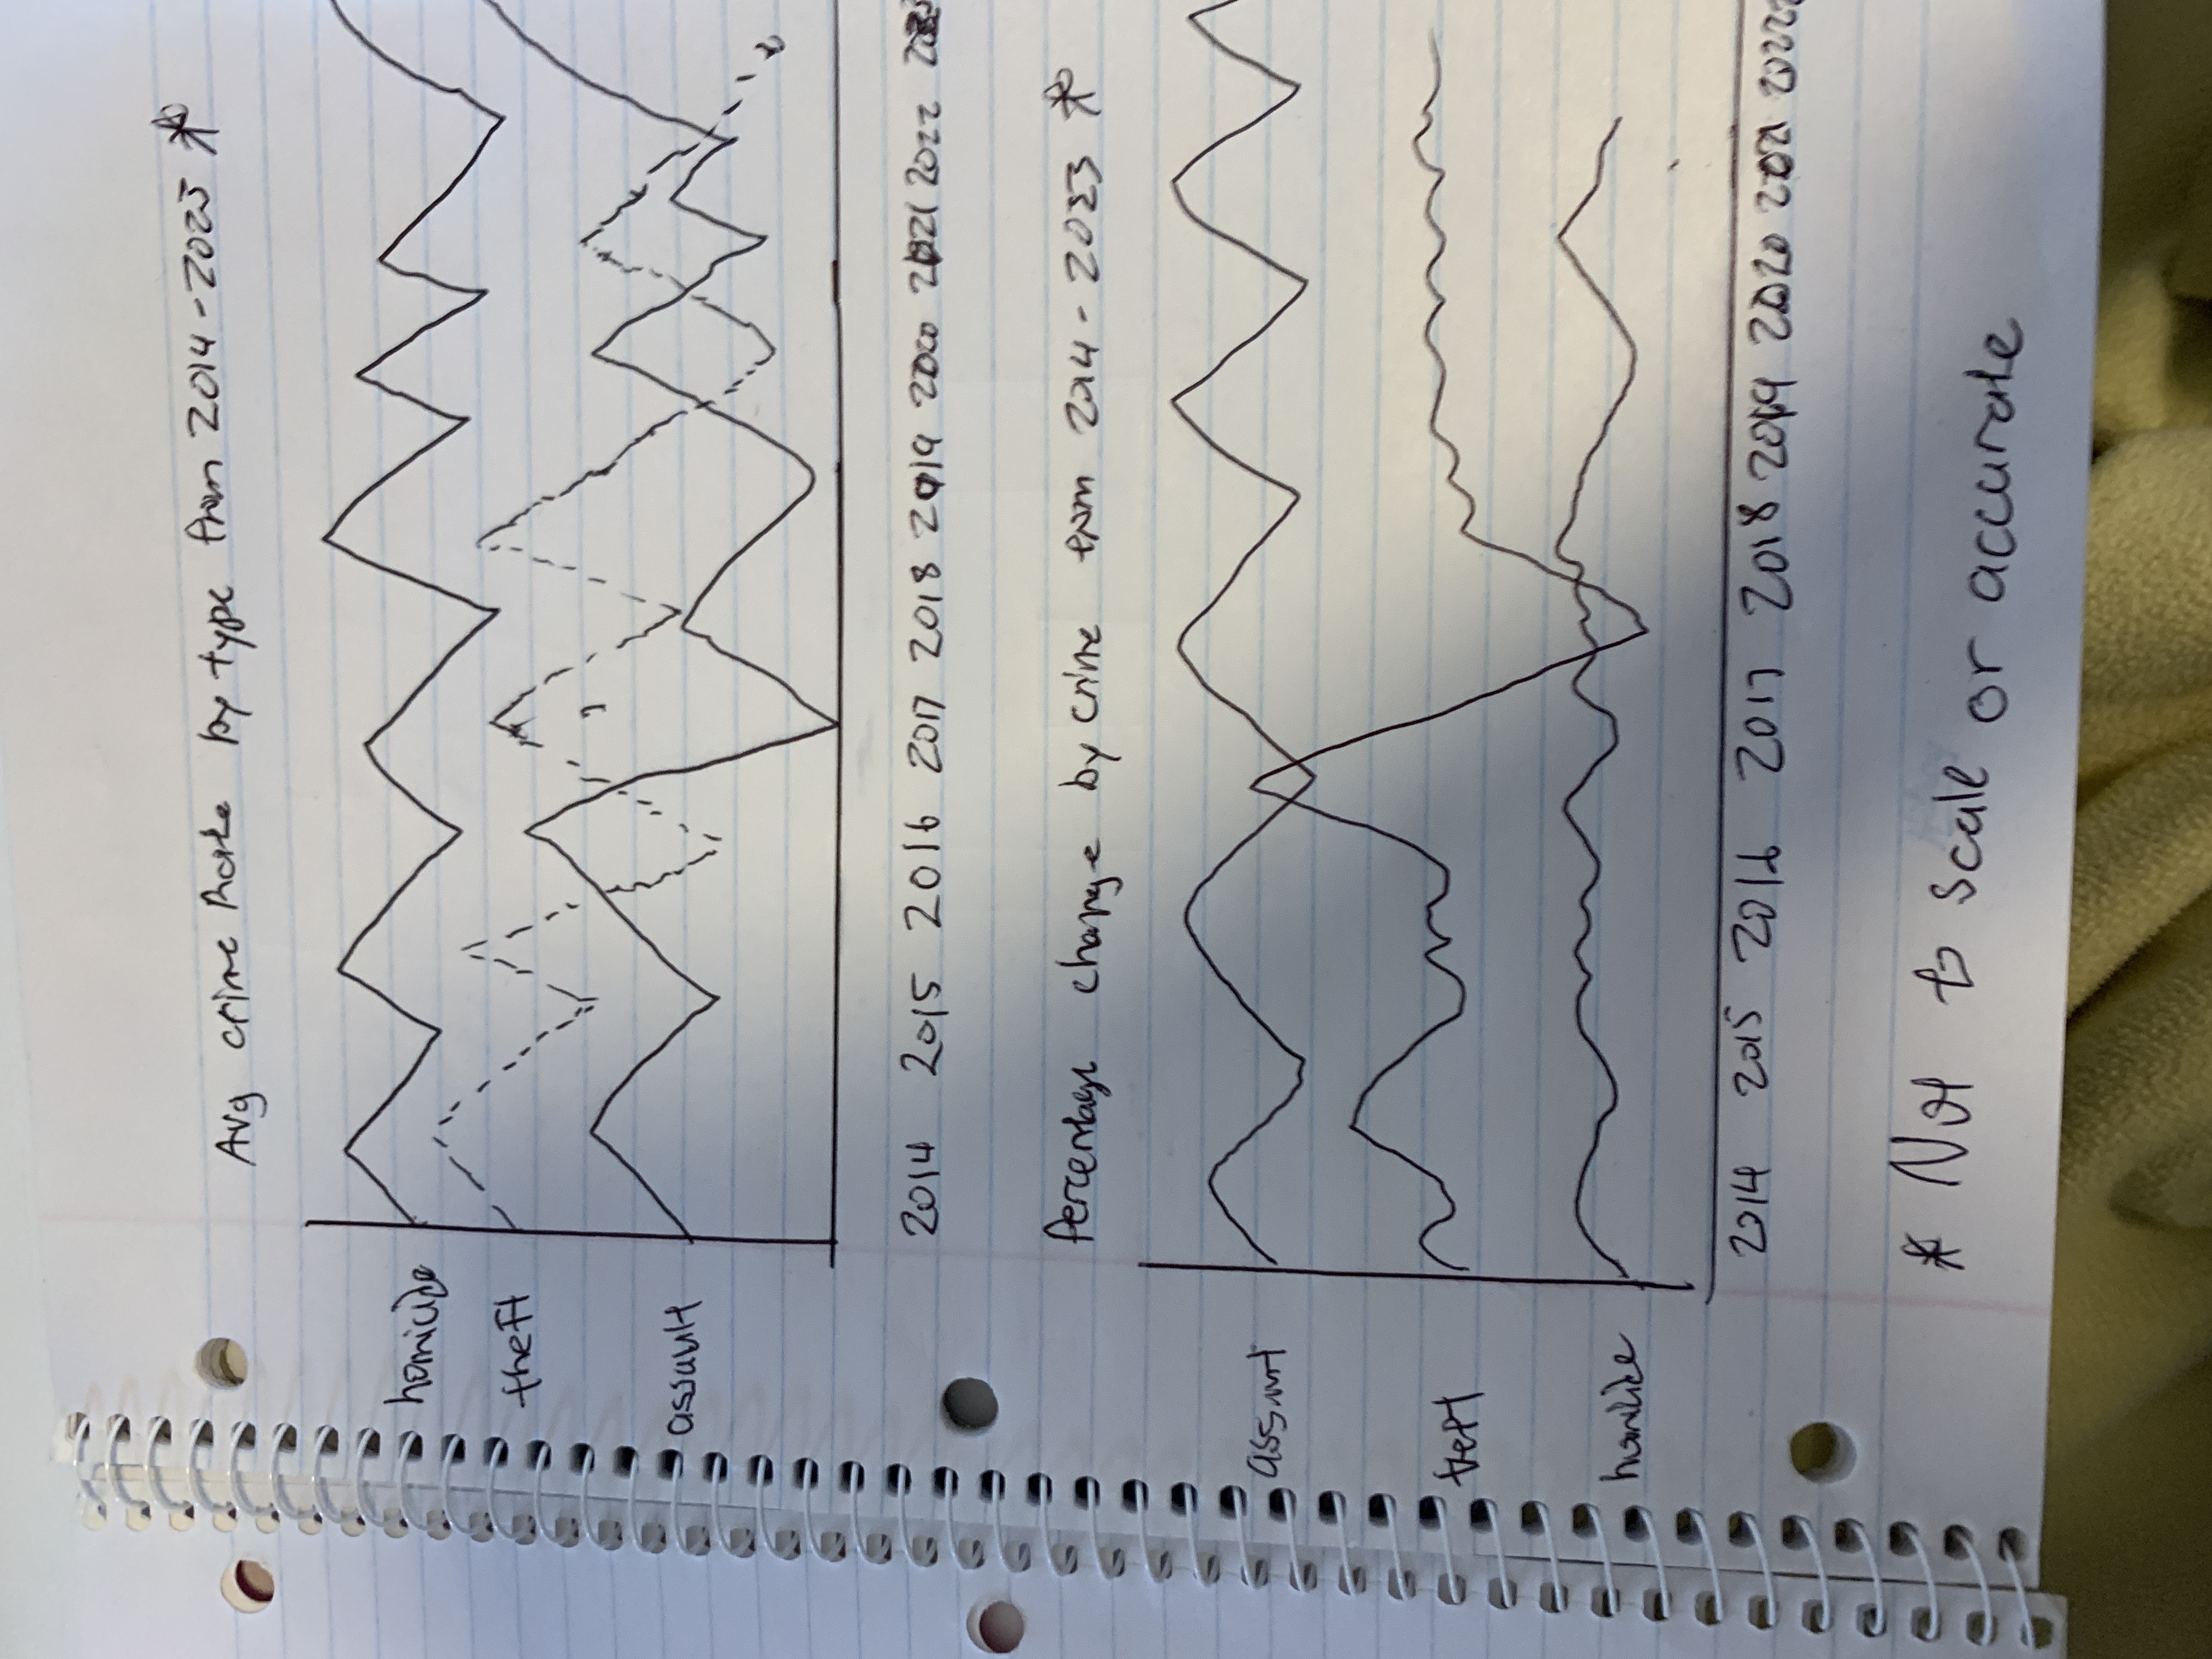 Avg crime Rate by type from 2014-2023 *
homicide
theft
assault
2014 2015 2016 2017 2018 2019 2020 2021 2022
Percentage change by crime from 2014-2023 *
assault
theft
homicide
2014 2015 2016 2017 2018 2019 2020 2021 2022
* Not to scale or accurate